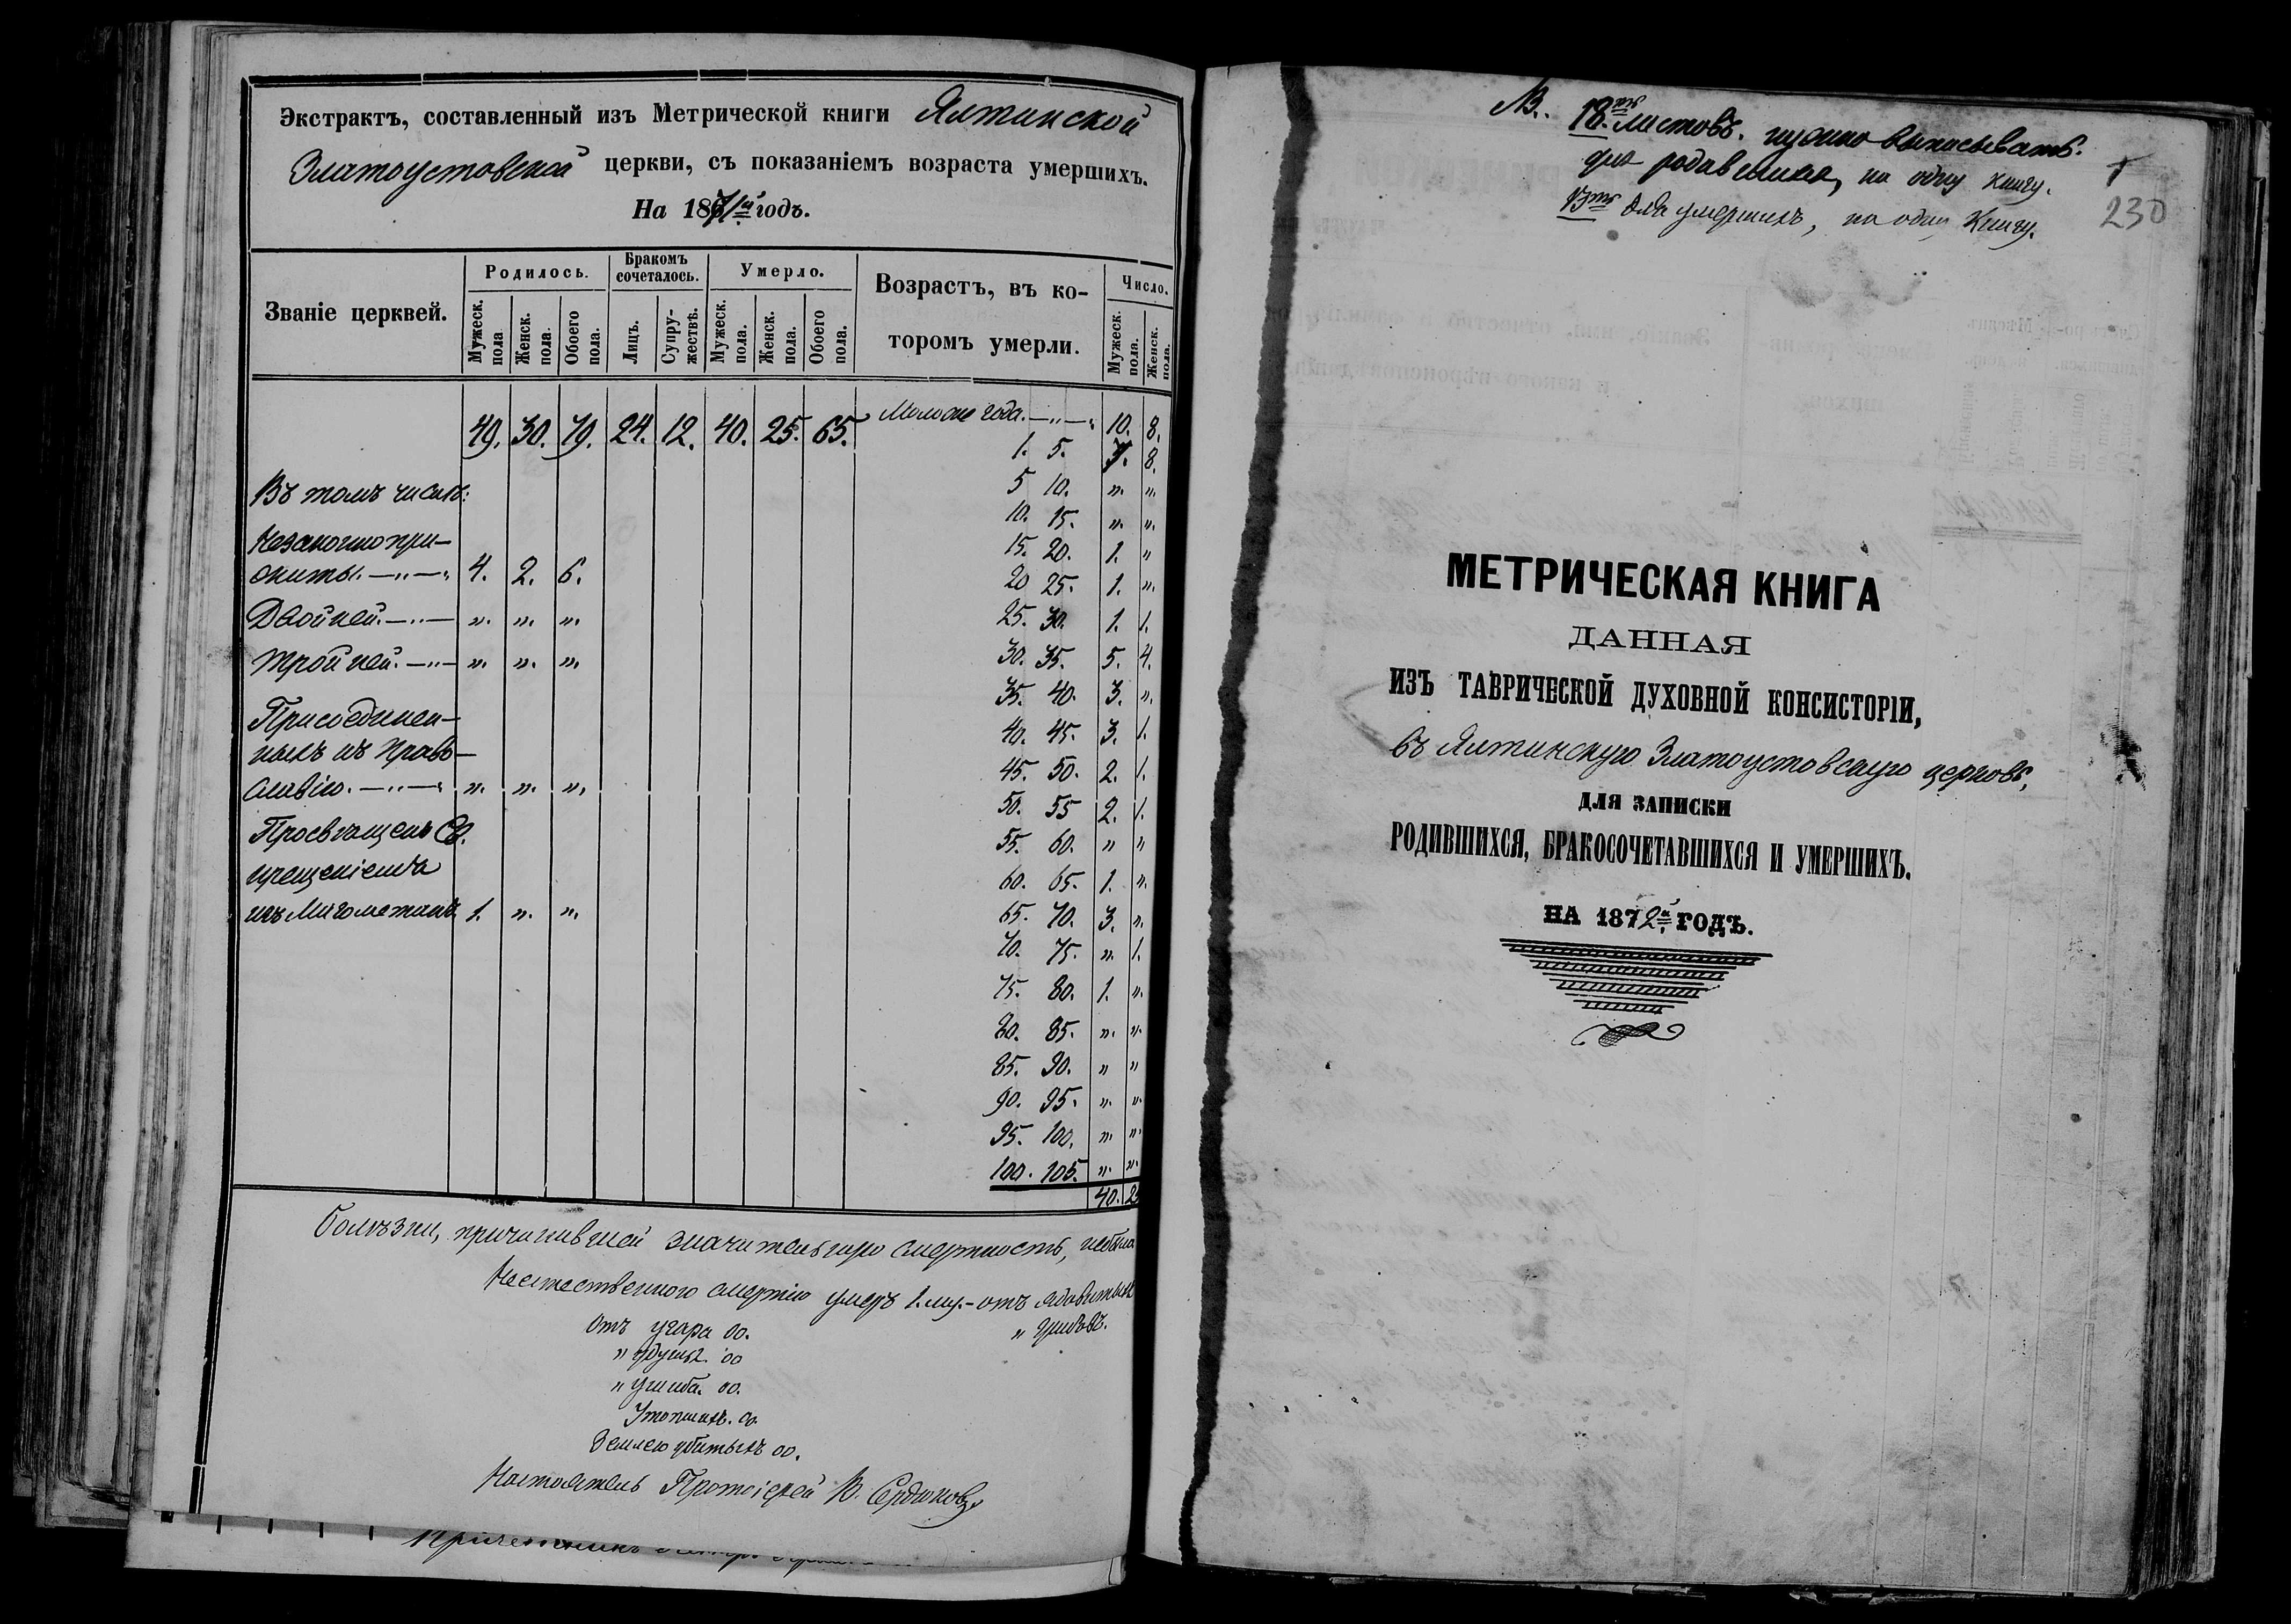 Экстрактъ, составленный изъ Метрической книги Ялтинской
Златоустовской церкви, съ показаніемъ возраста умершихъ.
На 1871й годъ.
Званіе церквей.
Родилось.
Бракомъ сочеталось.
Умерло.
Возрастъ, въ которомъ умерли.
Число.
Мужеск. пола
Женск. пола.
Обоего пола.
Лицъ.
Супружествъ.
Мужеск. пола.
Женск. пола.
Обоего пола.
Мужеск. пола.
Женск. пола.
49. 30. 79. 24. 12. 40. 25. 65. Моложе года. —„— 10. 8.
1. 5. 7. 8.
Въ томъ числѣ: 5 10. „. „.
10. 15. „. „.
Незаконнопри-
житы. —„—. 4. 2. 6. 15. 20. 1. „
20 25. 1. „.
Двойней. —„— „. „. „. 25. 30. 1. 1.
Тройней. —„— „. „. „. 30. 35. 5. 4.
35. 40. 3. „.
Присоединен-
ныхъ къ Право- 40. 45. 3. 1.
славію. —„—. „. „. „. 45. 50. 2. 1.
50. 55 2. 1.
Просвѣщенъ Св. 55. 60. „ „
крещеніемъ 60. 65. 1. „.
изъ Магометанъ 1. „. „. 65. 70. 3. „.
70. 75. „. 1.
75. 80. 1. „.
80. 85. „. „.
85. 90. „ „
90. 95. „. „.
95. 100. „. „.
100. 105. „. „.
40. 25
Болѣзни, причинившей значительную смертность, небыло
Неестественною смертію умеръ 1. муж. - отъ ядовитыхъ
Отъ угара 00. „ грибовъ.
„ 00
„ ушиба. 00.
Утопшихъ. 00
Землею убитыхъ 00.
Настоятель Протоіерей В. Сердюковъ
Причетникъ
NB. 18ть листовъ. нужно выписывать.
для родившихся, на одну книгу.
13ть для умершихъ, на одну Книгу.
230
МЕТРИЧЕСКАЯ КНИГА
ДАННАЯ
ИЗЪ ТАВРИЧЕСКОЙ ДУХОВНОЙ КОНСИСТОРІИ,
въ Ялтинскую Златоустовскую церковь,
ДЛЯ ЗАПИСКИ
РОДИВШИХСЯ, БРАКОСОЧЕТАВШИХСЯ И УМЕРШИХЪ.
НА 1872й ГОДЪ.